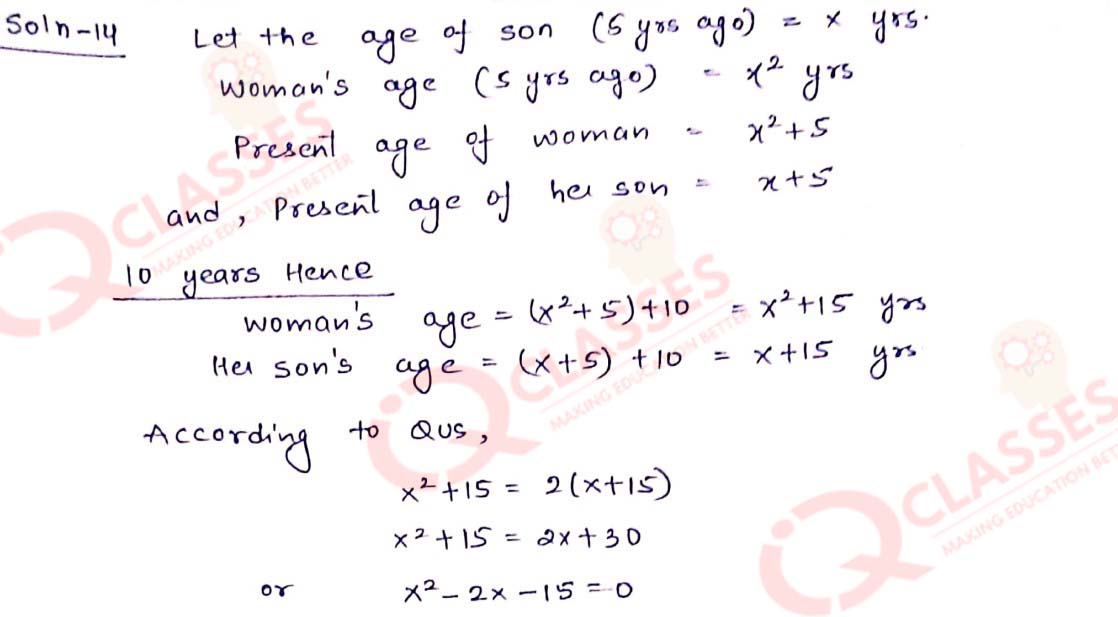 Soln-14 Let the age of son (5 yrs ago) = x yrs.
Woman's age (5 yrs ago) = x² yrs
Present age of woman = x²+5
and, Present age of her son = x+5
10 years Hence
Woman's age = (x²+5)+10 = x²+15 yrs
Her son's age = (x+5)+10 = x+15 yrs
According to Qus,
x²+15 = 2(x+15)
x²+15 = 2x+30
or x²-2x-15=0
IQ CLASSES
MAKING EDUCATION BETTER
IQ CLASSES
MAKING EDUCATION BETTER
IQ CLASSES
MAKING EDUCATION BET